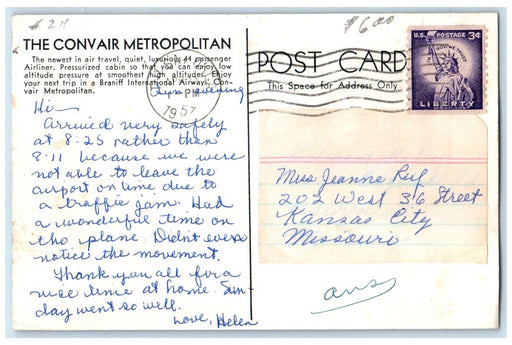 # 211
$6.00
THE CONVAIR METROPOLITAN
The newest in air travel, quiet, luxurious 44 passenger
Airliner. Pressurized cabin so that you can enjoy low
altitude pressure at smoothest high altitudes. Enjoy
your next trip in a Braniff International Airways' Con-
vair Metropolitan.
evening
Hi—
Arrived very safely
at 8:25 rather than
8:11 because we were
not able to leave the
airport on time due to
a traffic jam. Had
a wonderful time on
the plane. Didn't even
notice the movement.
Thank you all for a
nice time at home. Sun-
day went so well.
Love, Helen
PM
1957
POST CARD
This Space for Address Only
U.S. POSTAGE 3¢
IN GOD WE TRUST
LIBERTY
Miss Jeanne Ruf
202 West 36 Street
Kansas City
Missouri
ans